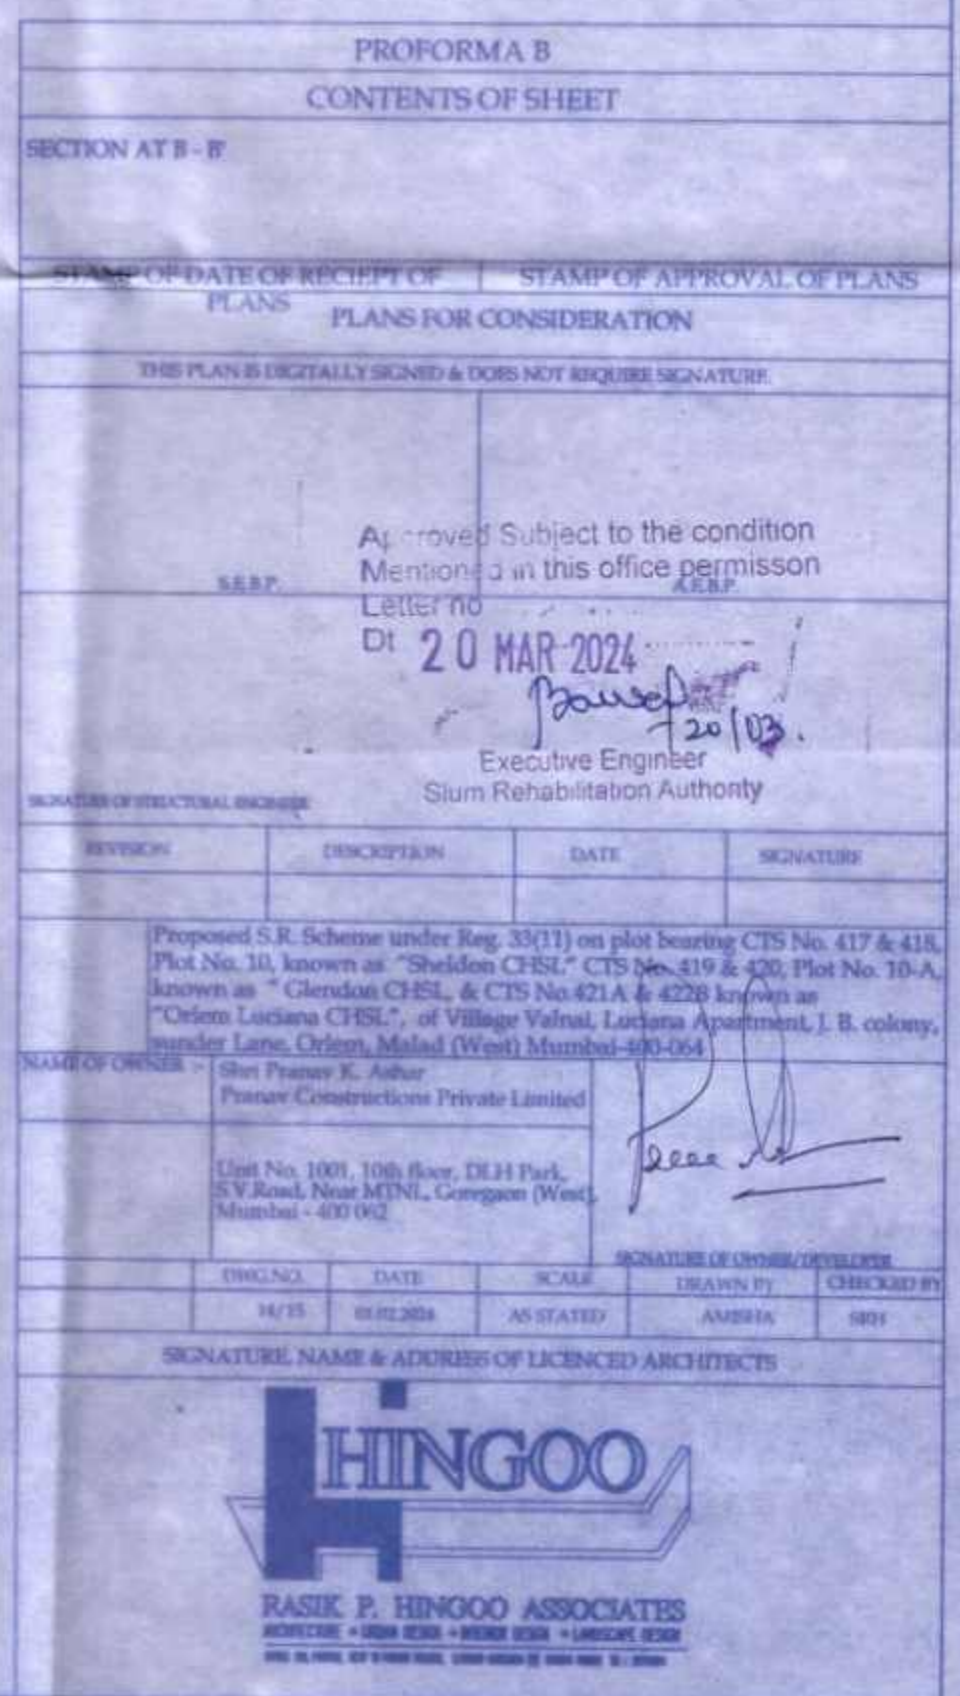 PROFORMA B
CONTENTS OF SHEET
SECTION AT B - B'
STAMP OF DATE OF RECIEPT OF PLANS
STAMP OF APPROVAL OF PLANS
PLANS FOR CONSIDERATION
THIS PLAN IS DIGITALLY SIGNED & DOES NOT REQUIRE SIGNATURE.
S.E.B.P.
A.E.B.P.
Approved Subject to the condition
Mentioned in this office permisson
Letter no
Dt 20 MAR 2024
20/03.
Executive Engineer
Slum Rehabilitation Authority
SIGNATURE OF STRUCTURAL ENGINEER
REVISION DESCRIPTION DATE SIGNATURE
Proposed S.R. Scheme under Reg. 33(11) on plot bearing CTS No. 417 & 418,
Plot No. 10, known as "Sheldon CHSL" CTS No. 419 & 420, Plot No. 10-A,
known as " Glendon CHSL, & CTS No.421A & 422B known as
"Orlem Luciana CHSL", of Village Valnai, Luciana Apartment, J. B. colony,
sunder Lane, Orlem, Malad (West) Mumbai-400-064
NAME OF OWNER :-
Shri Pranav K. Ashar
Pranav Constructions Private Limited
Unit No. 1001, 10th floor, DLH Park,
S.V.Road, Near MTNL, Goregaon (West),
Mumbai - 400 062
SIGNATURE OF OWNER/DEVELOPER
DWG.NO. DATE SCALE DRAWN BY CHECKED BY
14/15 AS STATED AMISHA
SIGNATURE, NAME & ADDRESS OF LICENCED ARCHITECTS
HINGOO
RASIK P. HINGOO ASSOCIATES
ARCHITECTURE URBAN DESIGN INTERIOR DESIGN LANDSCAPE DESIGN